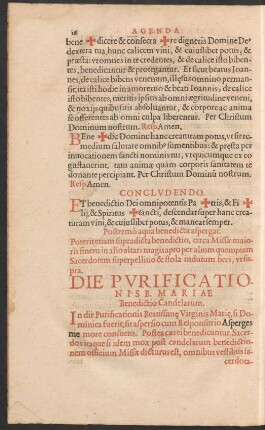 18 AGENDA
bene ✠ dicere & consecra ✠ re digneris Domine De⸗
dextera tua hunc calicem vini, & cuiuslibet potus, &
præsta: vt omnes in te credentes, & de calice isto biben⸗
tes, benedicantur & protegantur. Et sicut beatus Ioan⸗
nes, de calice bibens venenum, illæsus omnino perman⸗
sit, ita isti hodie in amore tuo & beati Ioannis, de calice
isto bibentes, meritis ipsius ab omni ægritudine veneni,
& noxijs quibusuis absoluantur, & corpore ac anima
se offerentes ab omni culpa liberentur. Per Christum
Dominum nostrum. Resp Amen.
BEne ✠ dic Domine creaturam potus, vt sit re⸗
medium salutare omnibus sumentibus: & præsta per
inuocationem sancti nominis tui, vt quicumque ex eo
gustauerint, tam animæ quàm corporis sanitatem te
donante percipiant. Per Christum Dominũ nostrum.
Resp Amen.
CONCLVDENDO.
ET benedictio Dei omnipotentis Pa ✠ tris, & Fi ✠
lij, & Spiritus ✠ sancti, descendat super hanc crea⸗
turam vini, & cuiuslibet potus, & maneat semper.
Postremò aqua benedicta aspergat.
Poterit etiam supradicta benedictio, circa Missæ maio⸗
ris finem in alio altari
Sacerdotem superpellitio & stola indutum fieri, vt su⸗
pra.
DIE PVRIFICATIO⸗
NIS B. MARIAE
Benedictio Candelarum.
In die Purificationis Beatissimæ Virginis Mariæ, si Do⸗
minica fuerit, sit aspersio cum Responsorio Asperges
me more consueto. Postea cærei benedicuntur. Sacer⸗
dos itaque si idem mox post candelarum benedictio⸗
nem officium Missæ dicturus est, omnibus vestibus sa⸗
cerdota⸗